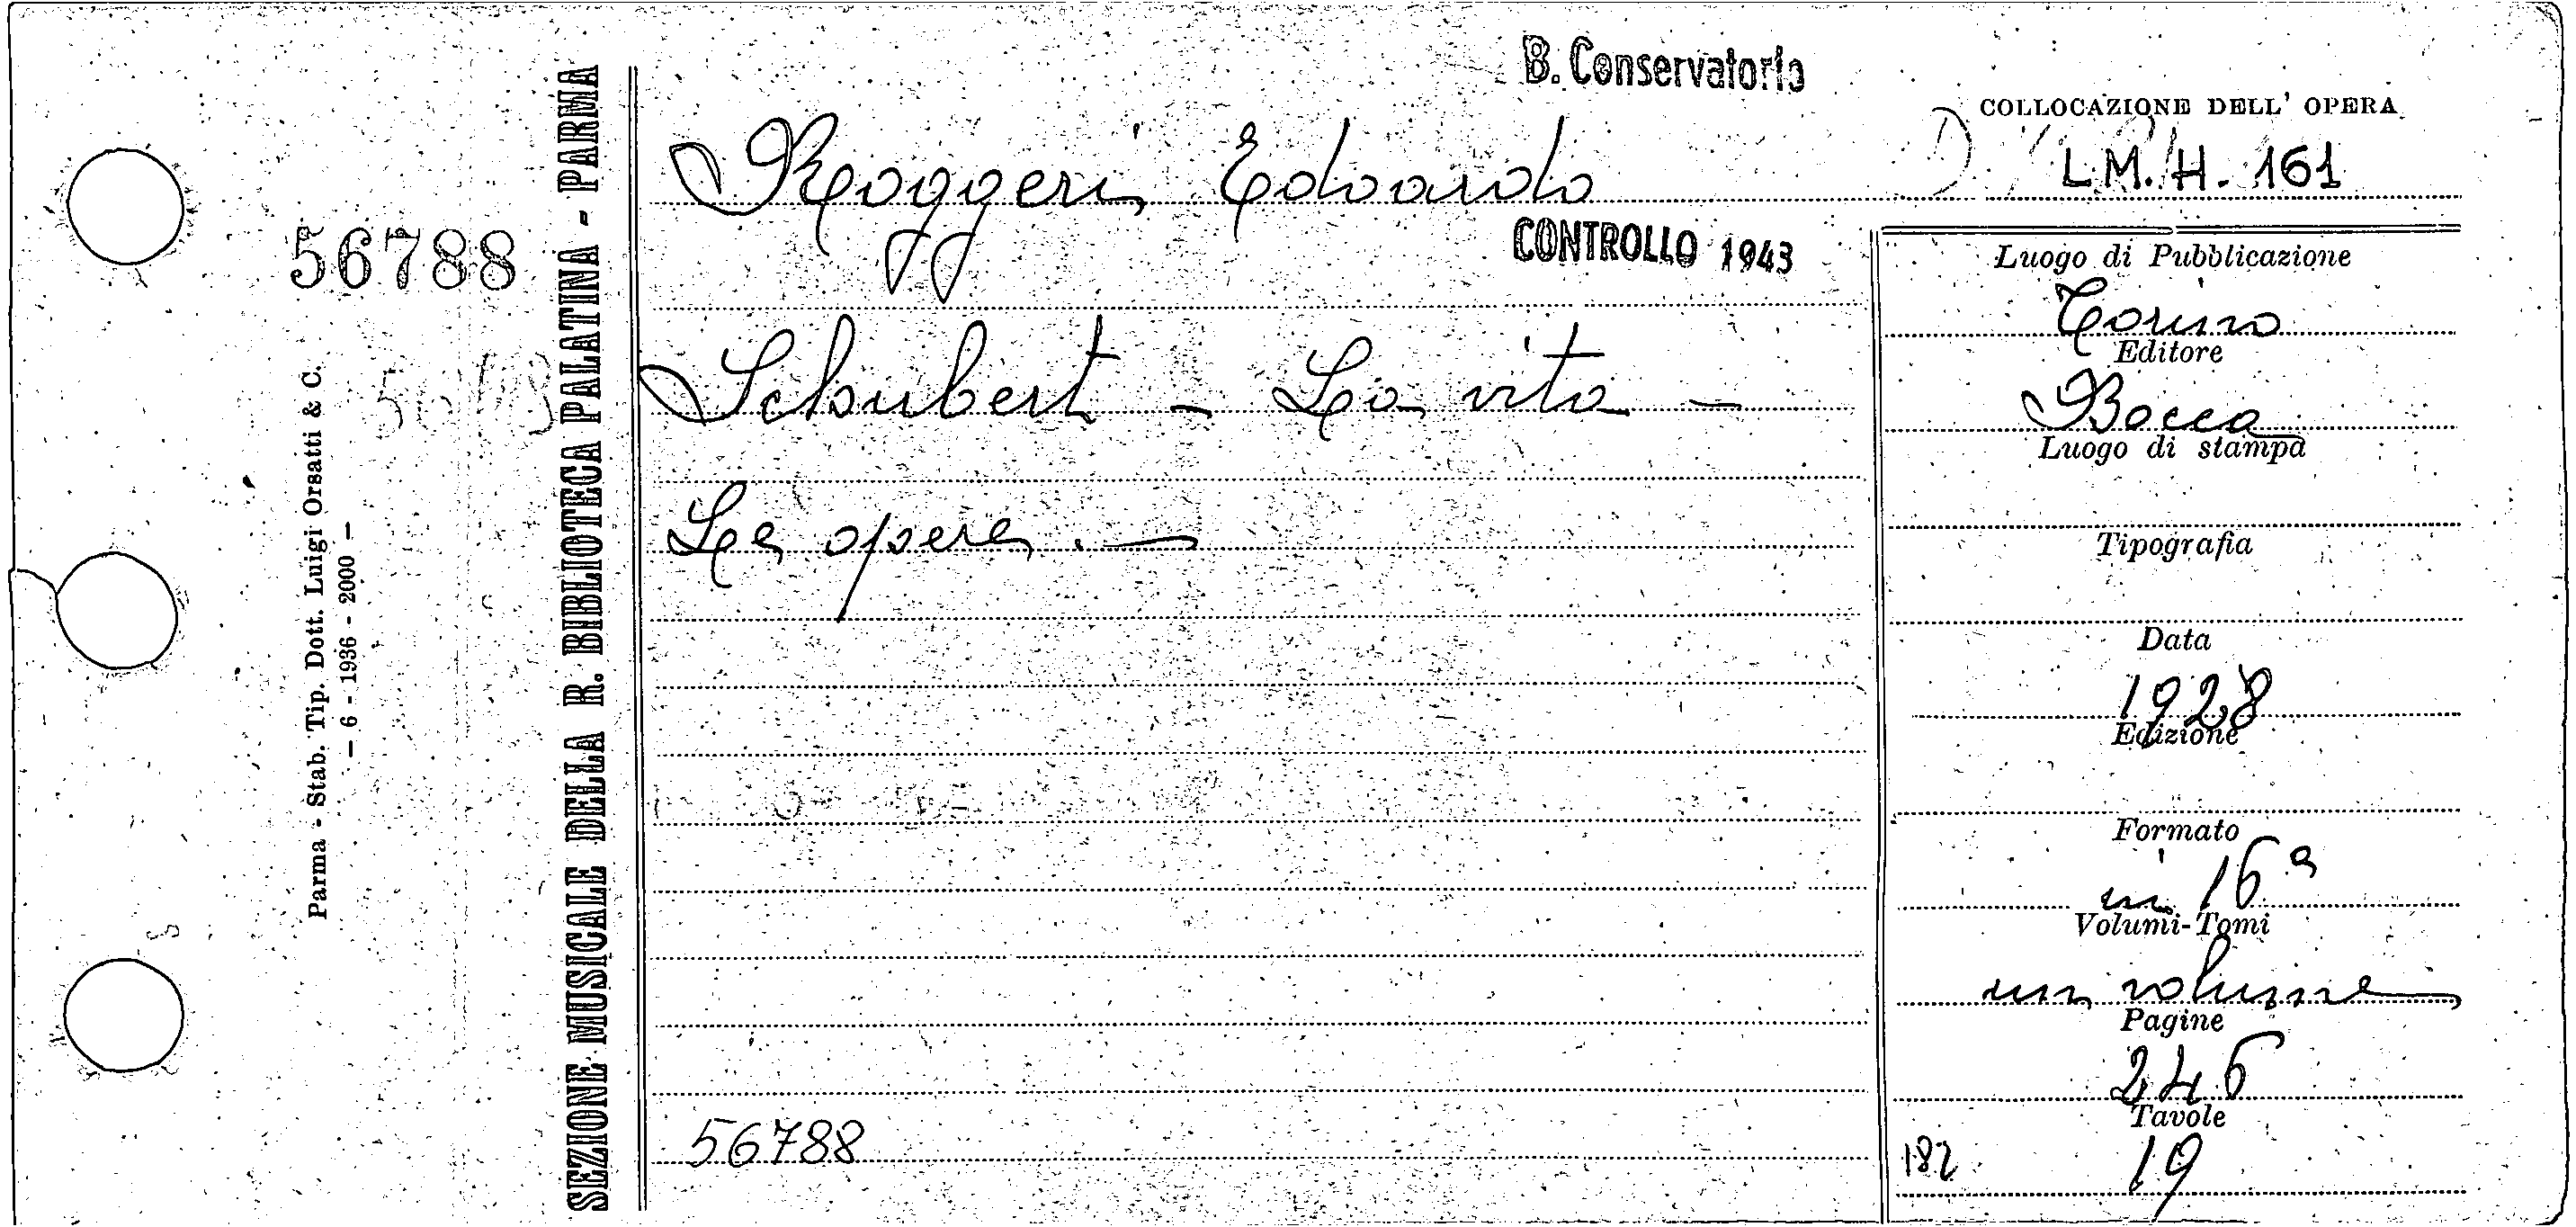 B. Conservatorio
COLLOCAZIONE DELL' OPERA
L.M.H. 161
Roggeri Edoardo
CONTROLLO 1943
56788
Schubert - La vita -
Le opere. —
56788
Luogo di Pubblicazione
Torino
Editore
Bocca
Luogo di stampa
Tipografia
Data
1928
Edizione
Formato
in 16°
Volumi-Tomi
un volume
Pagine
246
Tavole
182 19
SEZIONE MUSICALE DELLA R. BIBLIOTECA PALATINA - PARMA
Parma - Stab. Tip. Dott. Luigi Orsatti & C.
— 6 - 1936 - 2000 —